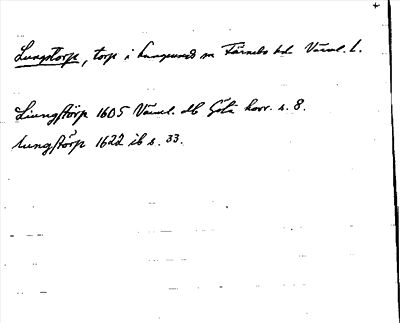 Lungstorp, torp i Lungsunds sn Färnebo hd Värml. l.
Liungstörp 1605 Värml. db Göta hovr. s. 8.
Lungstörp 1622 ib s. 33.